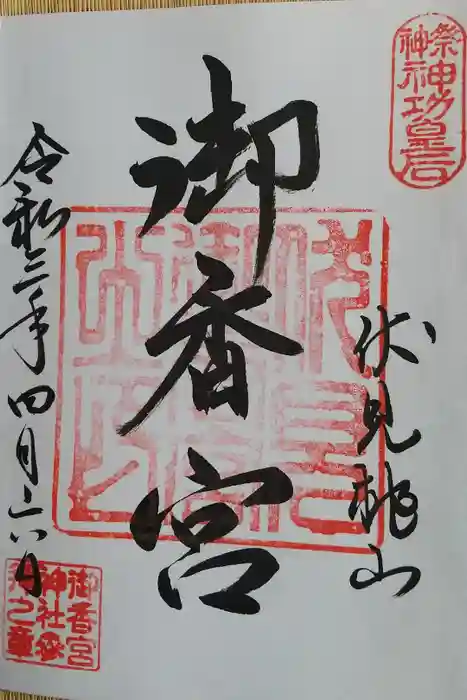 祭神
神功皇后
伏見桃山
御香宮
令和三年四月六日
御香宮
神社参
拝之章